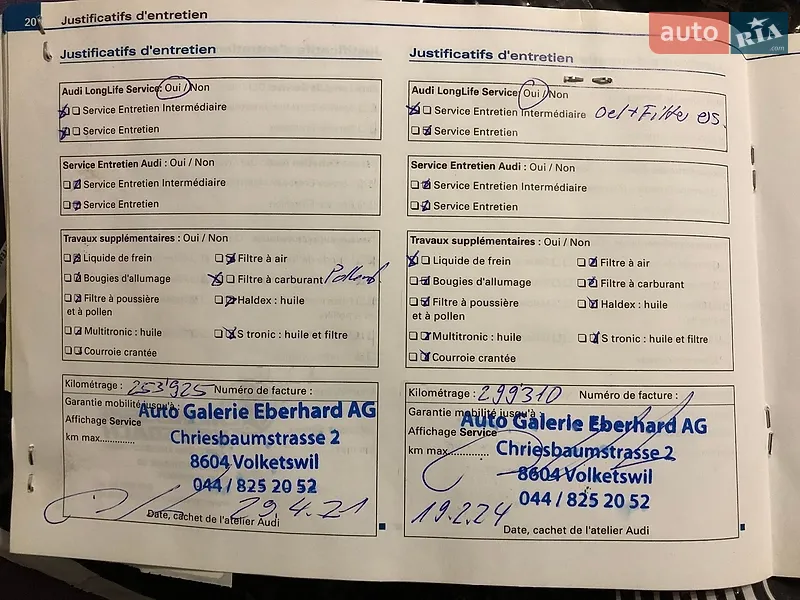 20
Justificatifs d'entretien
auto RIA.com
Justificatifs d'entretien
Audi LongLife Service: Oui / Non
Service Entretien Intermédiaire
Service Entretien
Service Entretien Audi : Oui / Non
Service Entretien Intermédiaire
Service Entretien
Travaux supplémentaires : Oui / Non
Liquide de frein
Filtre à air
Bougies d'allumage
Filtre à carburant Pollenf.
Filtre à poussière
et à pollen
Haldex : huile
Multitronic : huile
S tronic : huile et filtre
Courroie crantée
Kilométrage : 253'925 Numéro de facture :
Garantie mobilité jusqu'à :
Auto Galerie Eberhard AG
Affichage Service
Chriesbaumstrasse 2
km max..............
8604 Volketswil
044 / 825 20 52
29.4.21
Date, cachet de l'atelier Audi
Justificatifs d'entretien
Audi LongLife Service: Oui / Non
Service Entretien Intermédiaire Oel+Filter ers.
Service Entretien
Service Entretien Audi : Oui / Non
Service Entretien Intermédiaire
Service Entretien
Travaux supplémentaires : Oui / Non
Liquide de frein
Filtre à air
Bougies d'allumage
Filtre à carburant
Filtre à poussière
et à pollen
Haldex : huile
Multitronic : huile
S tronic : huile et filtre
Courroie crantée
Kilométrage : 299310 Numéro de facture :
Garantie mobilité jusqu'à :
Auto Galerie Eberhard AG
Affichage Service
Chriesbaumstrasse 2
km max..............
8604 Volketswil
044 / 825 20 52
19.2.24
Date, cachet de l'atelier Audi